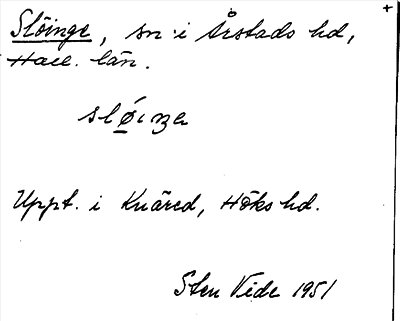 Slöinge, sn i Årstads hd,
Hall. län.
slø̀iŋə
Uppt. i Knäred, Höks hd.
Sten Vide 1951